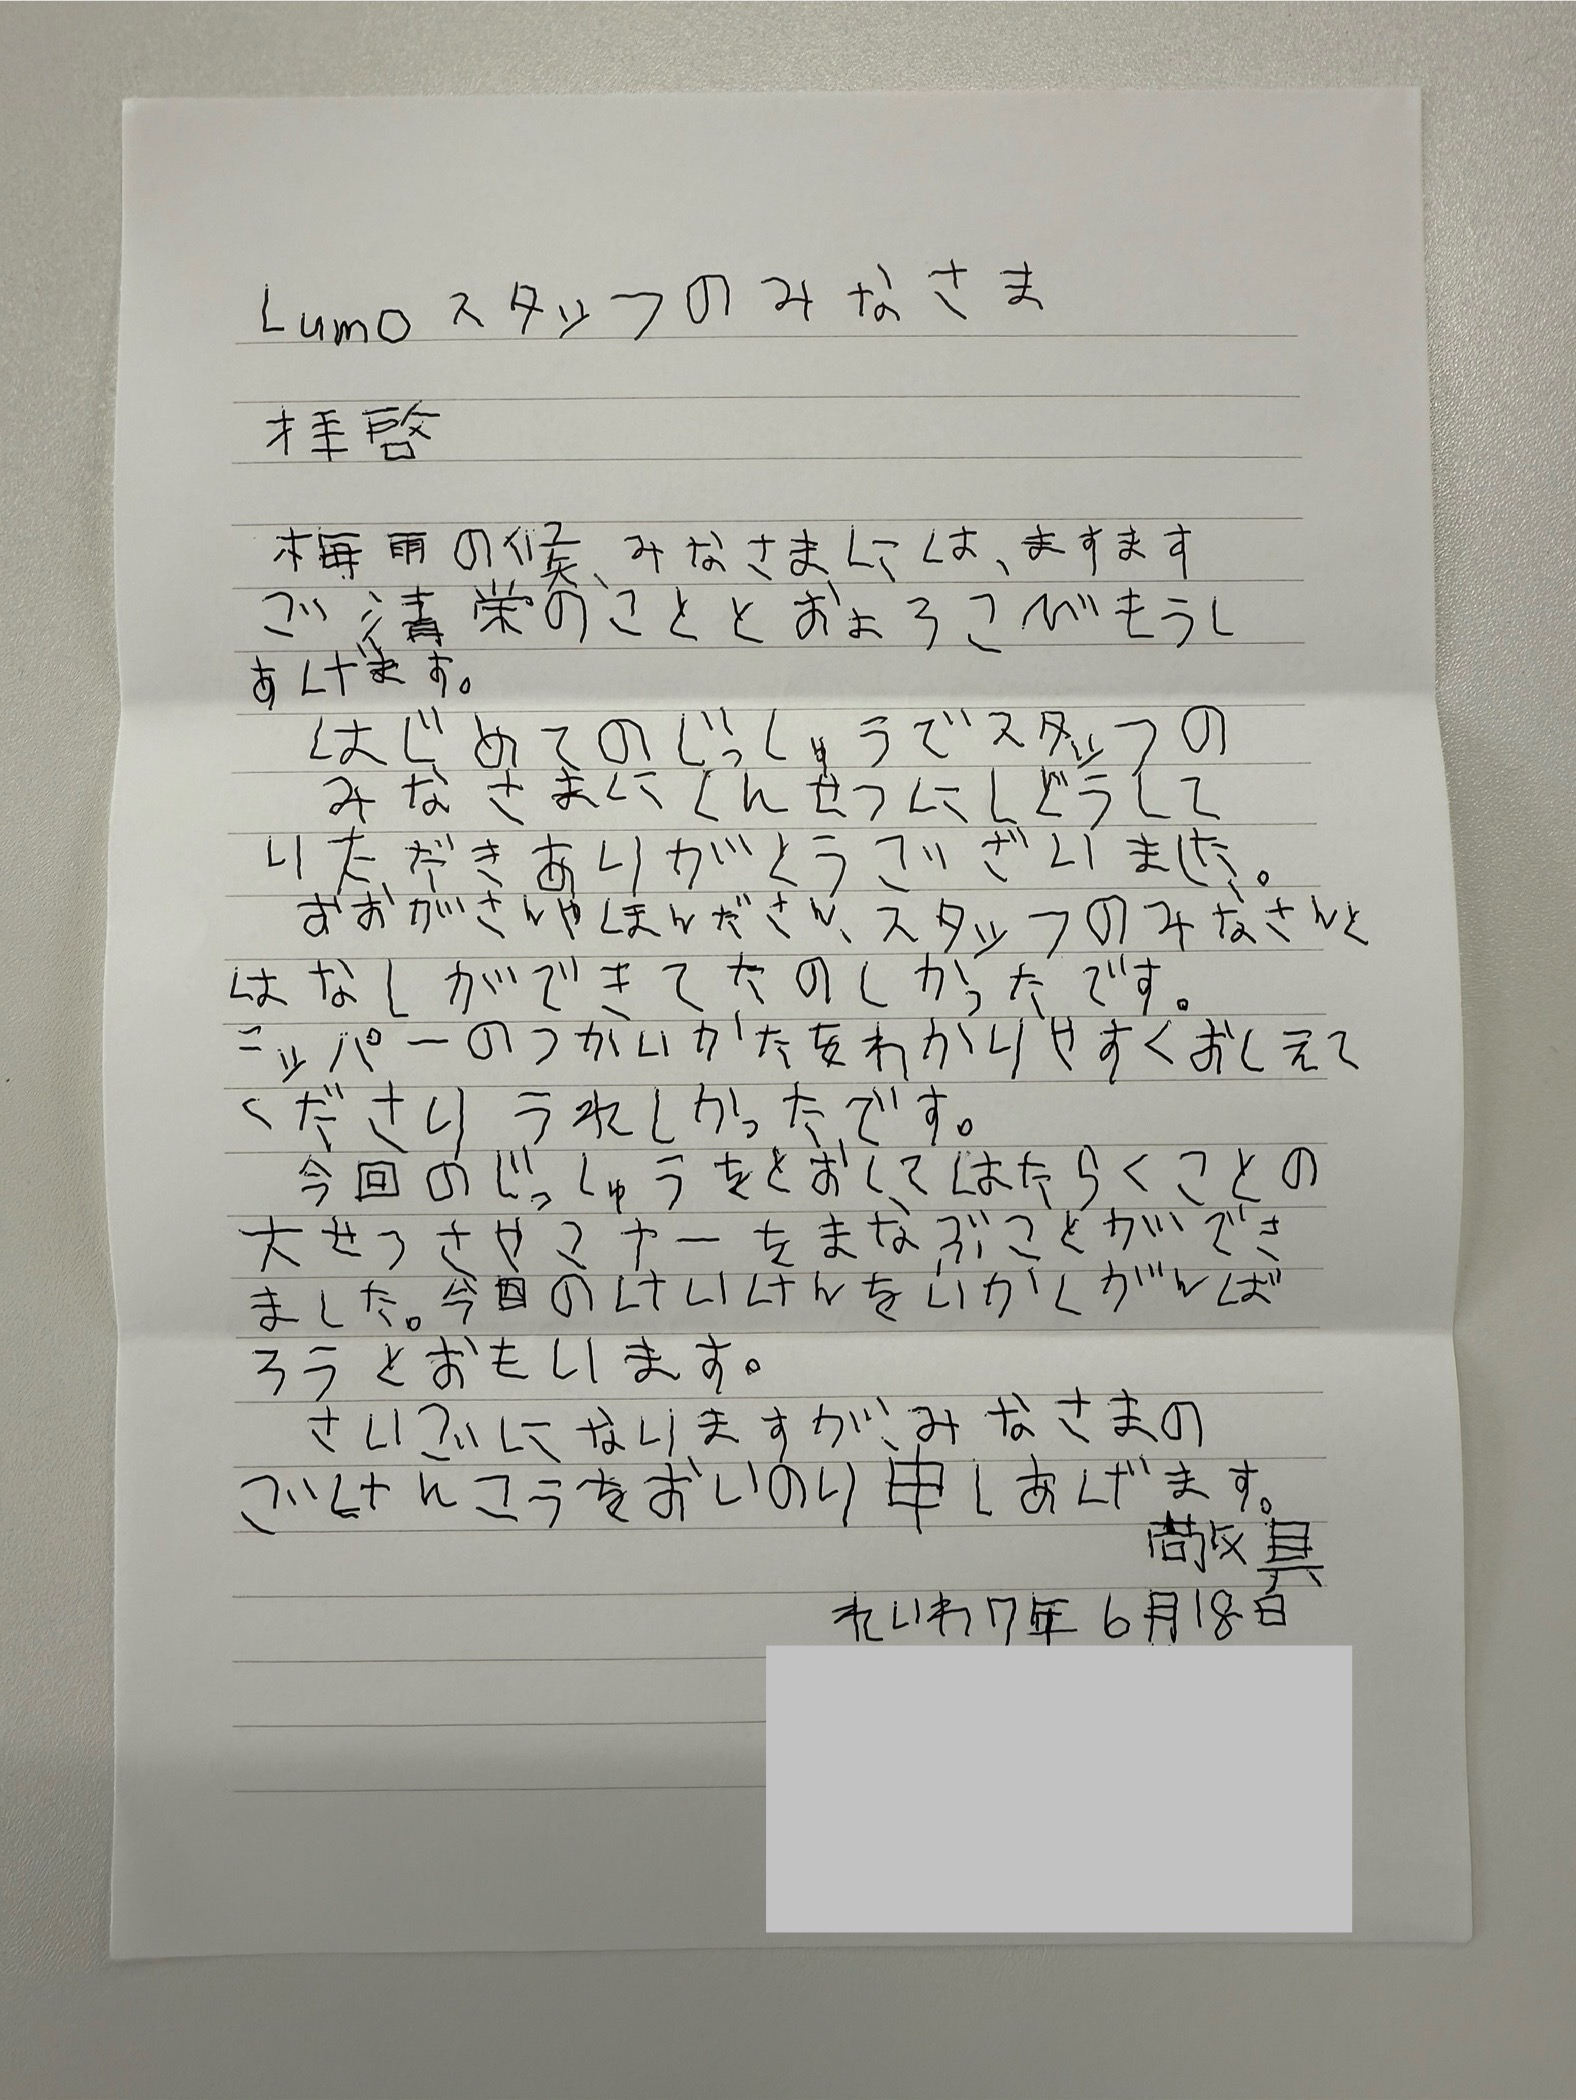 Lumoスタッフのみなさま
拝啓
梅雨の候、みなさまには、ますます
ご清栄のこととおよろこびもうし
あげます。
はじめてのじっしゅうでスタッフの
みなさまにしんせつにしどうして
いただきありがとうございました。
おおがさんやほんださん、スタッフのみなさんと
はなしができてたのしかったです。
ニッパーのつかいかたをわかりやすくおしえて
くださり うれしかったです。
今回のじっしゅうをとおしてはたらくことの
大せつさやマナーをまなぶことができ
ました。今回のけいけんをいかしがんば
ろうとおもいます。
さいごになりますが、みなさまの
ごけんこうをおいのり申しあげます。
敬具
れいわ7年6月18日